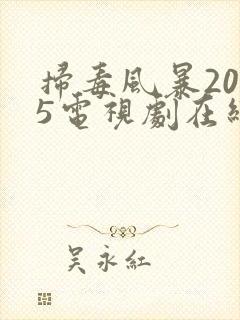 掃毒風暴20
5電視劇在
吴永紅